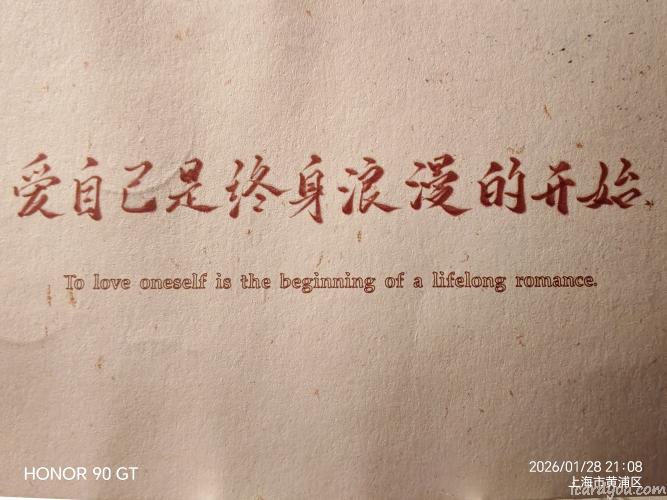 爱自己是终身浪漫的开始.
To love oneself is the beginning of a lifelong romance.
HONOR 90 GT
2026/01/28 21:08
上海市黄浦区